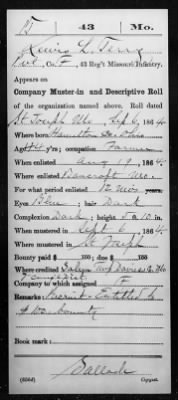 43 Mo.
Lewis L. Terry
Pvt., Co. F, 43 Reg't Missouri Infantry.
Appears on
Company Muster-in and Descriptive Roll
of the organization named above. Roll dated
St Joseph Mo Sep 6, 1864
Where born Hamilton Co. Ohio
Age 44 y'rs; occupation Farmer
When enlisted Aug 19, 1864
Where enlisted Bancroft Mo.
For what period enlisted 12 mos years.
Eyes Blue; hair Dark
Complexion Dark; height 5 ft. 10 in.
When mustered in Sept 6, 1864
Where mustered in St Joseph
Bounty paid $ 100; due $ 100
Where credited Salem Twp Daviess Co Mo
Company to which assigned F
Remarks: Recruit Entitled to
$ Bounty
Book mark:
Ballock
Copyist.